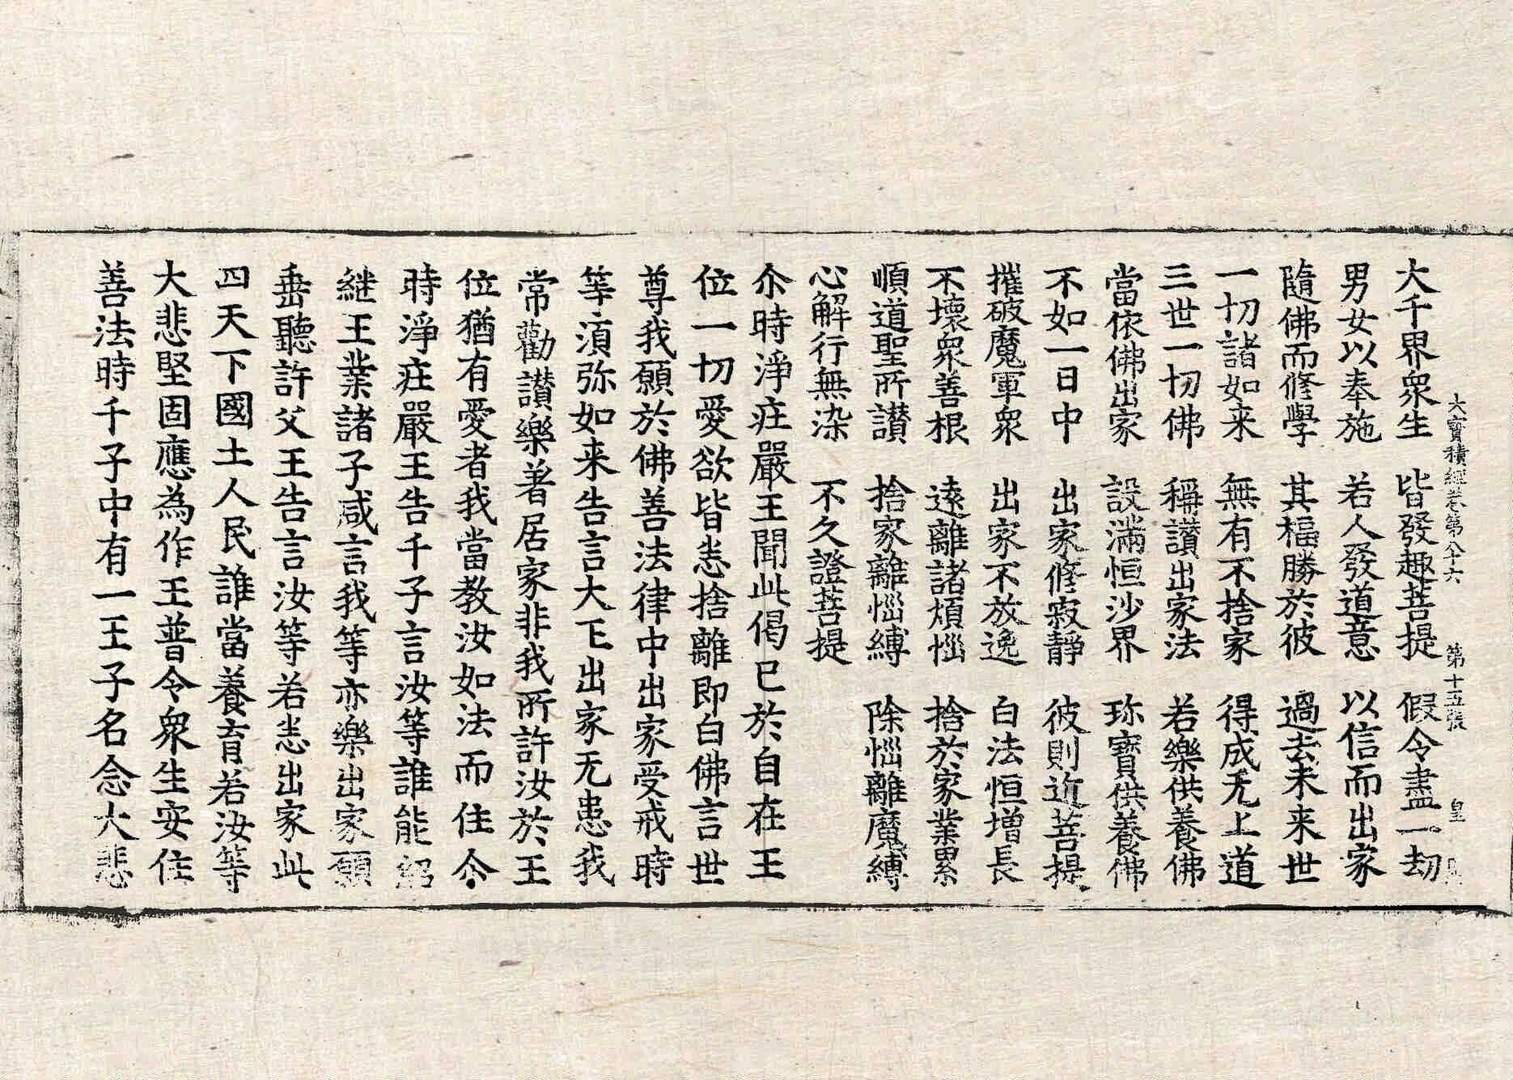 大寶積經卷第八十六　第十五張　皇
大千界衆生　皆發趣菩提　假令盡一劫
男女以奉施　若人發道意　以信而出家
隨佛而修學　其福勝於彼　過去未来世
一切諸如来　無有不捨家　得成无上道
三世一切佛　稱讃出家法　若樂供養佛
當依佛出家　設滿恒沙界　珎寶供養佛
不如一日中　出家修寂靜　彼則近菩提
摧破魔軍衆　出家不放逸　白法恒增長
不壞衆善根　遠離諸煩惱　捨於家業累
順道聖所讃　捨家離惱縛　除惱離魔縛
心解行無染　不久證菩提
尒時淨莊嚴王聞此偈已於自在王
位一切愛欲皆悉捨離即白佛言世
尊我願於佛善法律中出家受戒時
等湏弥如来告言大王出家无患我
常勸讃樂著居家非我所許汝於王
位猶有愛者我當教汝如法而住令
時淨莊嚴王告千子言汝等誰能紹
継王業諸子咸言我等亦樂出家願
垂聽許父王告言汝等若悉出家此
四天下國土人民誰當養育若汝等
大悲堅固應為作王普令衆生安住
善法時千子中有一王子名念大悲